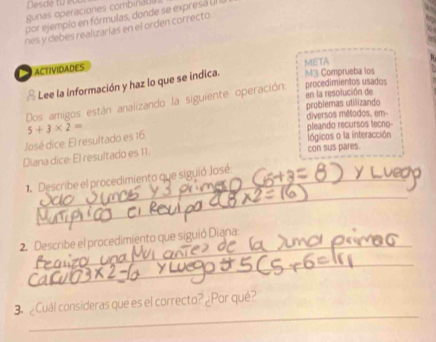 Desde tu
gunas operaciones combinadas,
por ejemplo en fórmulas, donde se expresa una
nes y debes realizarlas en el orden correcto.
ACTIVIDADES
Lee la información y haz lo que se indica.
Dos amigos están analizando la siguiente operación:
5 + 3 × 2 =
José dice: El resultado es 16.
Diana dice: El resultado es 11.
META
M3 Comprueba los
procedimientos usados
en la resolución de
problemas utilizando
diversos métodos, em-
pleando recursos tecno-
lógicos o la interacción
con sus pares.
1. Describe el procedimiento que siguió José:
y 3 primero (5+3=8) y Luego
el (8×2=16)
2. Describe el procedimiento que siguió Diana:
una antes de la suma primero
3×2= y luego 5 (5+6=11
3. ¿Cuál consideras que es el correcto? ¿Por qué?